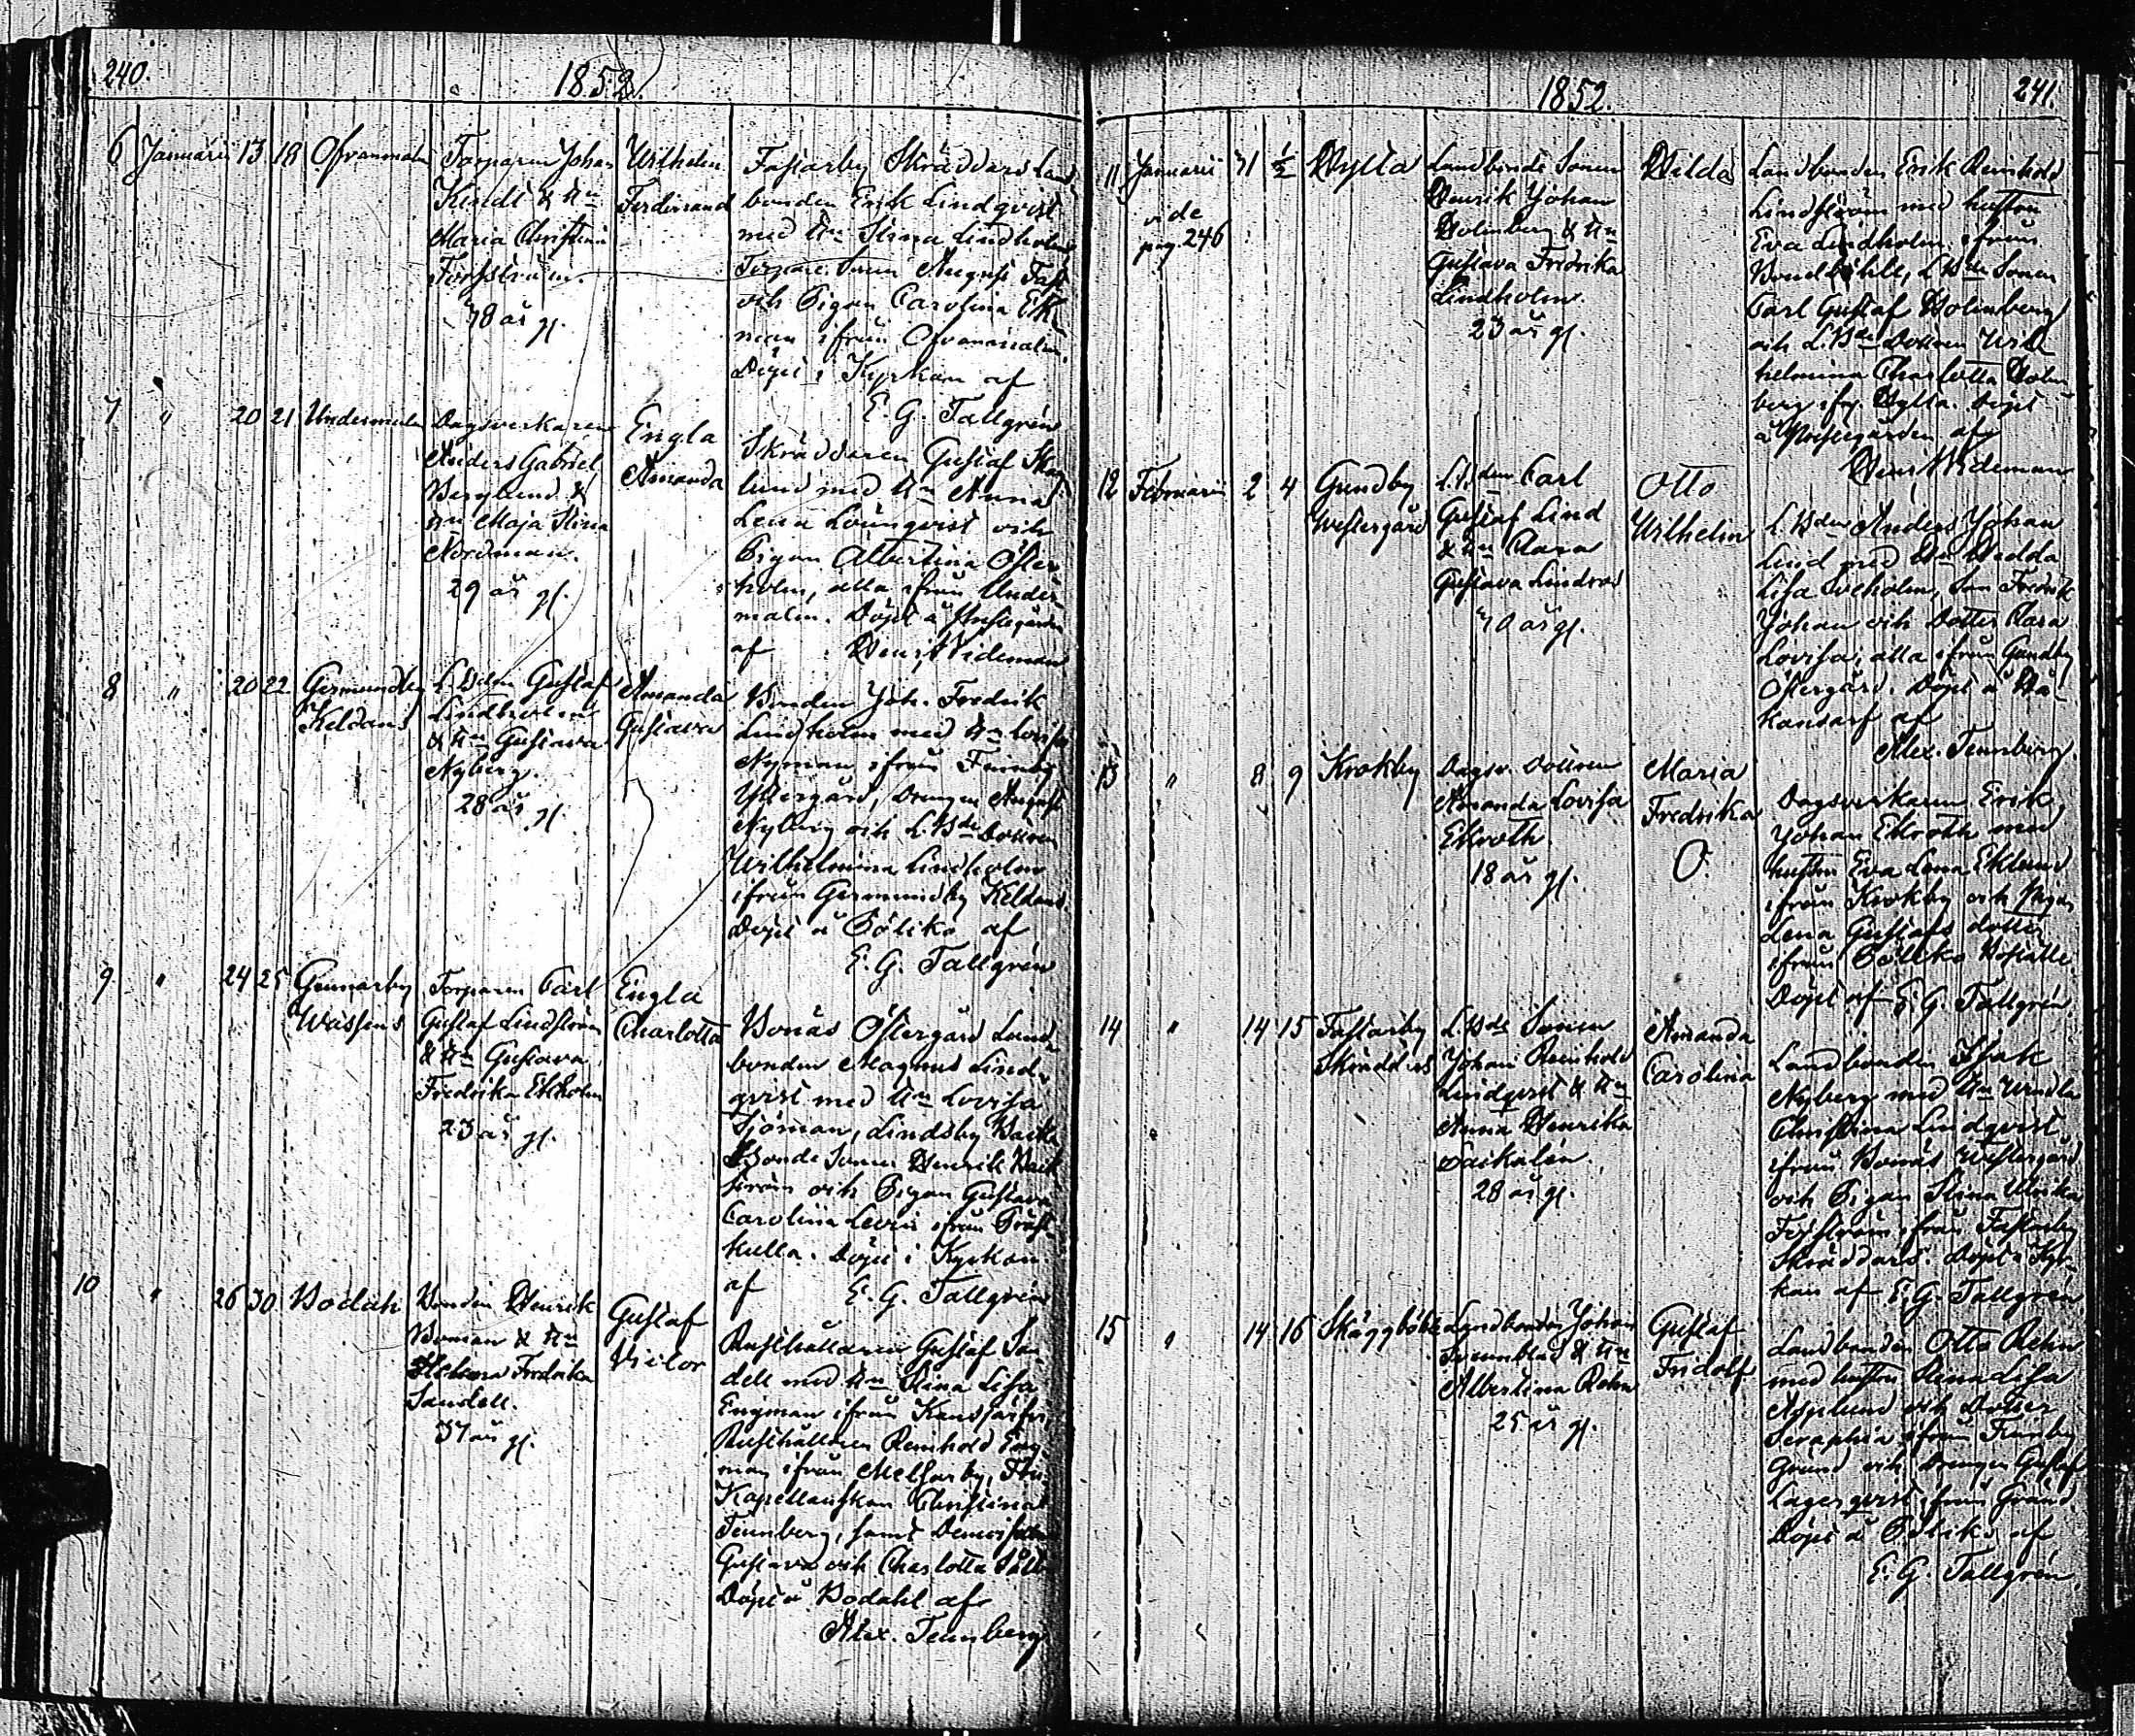 240.
1852.
6 Januarii 13 18 Ofvanmalm
Torparen Johan
& Hu
Maria Christina
Forsström.
38 år gl.
Wilhelm
Ferdinand
Fastarby Skräddars Land
bonden Erik Lindqvist
med Hu Stina Lindholm,
Torpare Sonen August
och Pigan Carolina Ek
man ifrån Ofvanmalm.
Döpt i Kyrkan af
E. G. Tallgrén
7 " 20 21 Undermalm
Dagsverkaren
Anders Gabriel
Berglund &
Hu Maja Stina
Nordman.
29 år gl.
Engla
Amanda
Skräddaren Gustaf
lund med Hu Anna
Lena Lönnqvist och
Pigan Albertina Öster
holm, alla ifrån Under
malm. Döpt å Prestegården
af Henr. Wideman
8 " 20 22 Germundby
Keldans
L.Bden Gustaf
Lindholm
& Hu Gustava
Nyberg.
28 år gl.
Amanda
Gustava
Bonden Joh. Fredrik
Lindholm med Hu Lovisa
Nyman ifrån Finnby
Yttergård, Drengen August
Nyberg och L.Bde Dottren
Wilhelmina Lindholm
ifrån Germundby Keldans.
Döpt å Söliko af
E. G. Tallgrén
9 " 24 25 Gennarby
Wassens
Torparen Carl
Gustaf Lindström
& Hu Gustava
Fredrika Ekholm
23 år gl.
Engla
Charlotta
Bonäs Östergård Land
bonden Magnus Lind
qvist med Hu Lovisa
Sjöman, Lindsby
Bonde Sonen Henrik Back
ström och Pigan Gustava
Carolina Levin ifrån
kulla. Döpt i Kyrkan
af E. G. Tallgrén
10 " 26 30 Bodahl
Bonden Henrik
Boman & Hu
Helena Fredrika
Sandell.
37 år gl.
Gustaf
Victor
Rusthållaren Gustaf San
dell med Hu Stina Lisa
Engman ifrån Kansjerfvi
Rusthållaren Reinhold Eng
man ifrån Melfarby, Fru
Kapellanskan Christina
Tennberg, samt
Gustava och Charlotta
Döpt å Bodahl af
Alex. Tennberg
1852.
241.
11 Januarii 31 1/2 Hylta
vide
pag. 246
Landbonde Sonen
Henrik Johan
Holmberg & Hu
Gustava Fredrika
Lindholm.
23 år gl.
Hilda
Landbonden Erik Reinhold
Lindström med hustru
Eva Lindholm ifrån
L.Bde Sonen
Carl Gustaf Holmberg
och L.Bde Dottren Wil
helmina Charlotta Holm
berg ifr. Hylta. Döpt
å Prestegården af
Henr. Wideman
12 Februarii 2 4 Gundby
Westergård
L.Bden Carl
Gustaf Lind
& Hu Clara
Gustava Lindroos
30 år gl.
Otto
Wilhelm
L.Bden Anders Johan
Lind med Hu Hedda
Lisa Sveholm, Son Fredrik
Johan och Dotter Clara
Lovisa, alla ifrån Gundby
Östergård. Döpt å
kansarf af
Alex. Tennberg.
13 " 8 9 Krokby
Dagsv. Dottren
Amanda Lovisa
Ekroth
18 år gl.
Maria
Fredrika
O.
Dagsverkaren Erik
Johan Ekroth med
hustru Eva Lena Eklund
ifrån Krokby och Pigan
Lena Gustafs dotter
ifrån Söliko
Döpt af E. G. Tallgrén
14 " 14 15 Fastarby
Skräddars
L.Bde Sonen
Johan Reinhold
Lindqvist & Hu
Anna Henrika
28 år gl.
Amanda
Carolina
Landbonden Isak
Nyberg med Hu Wendla
Christina Lindqvist
ifrån Bonäs Westergård
och Pigan Stina Ulrika
Forsström ifrån Fastarby
Skräddars. Döpt i Kyr
kan af E. G. Tallgrén
15 " 14 16 Skäggböle
Landbonden Johan
Svennblad & Hu
Albertina Rehn
25 år gl.
Gustaf
Fridolf
Landbonden Otto Rehn
med hustru Stina Lisa
Asplund och Dotter
Seraphia ifrån Finnby
Grund och Drengen Gustaf
Lagerqvist ifrån Grund.
Döpt å Söliko af
E. G. Tallgrén.